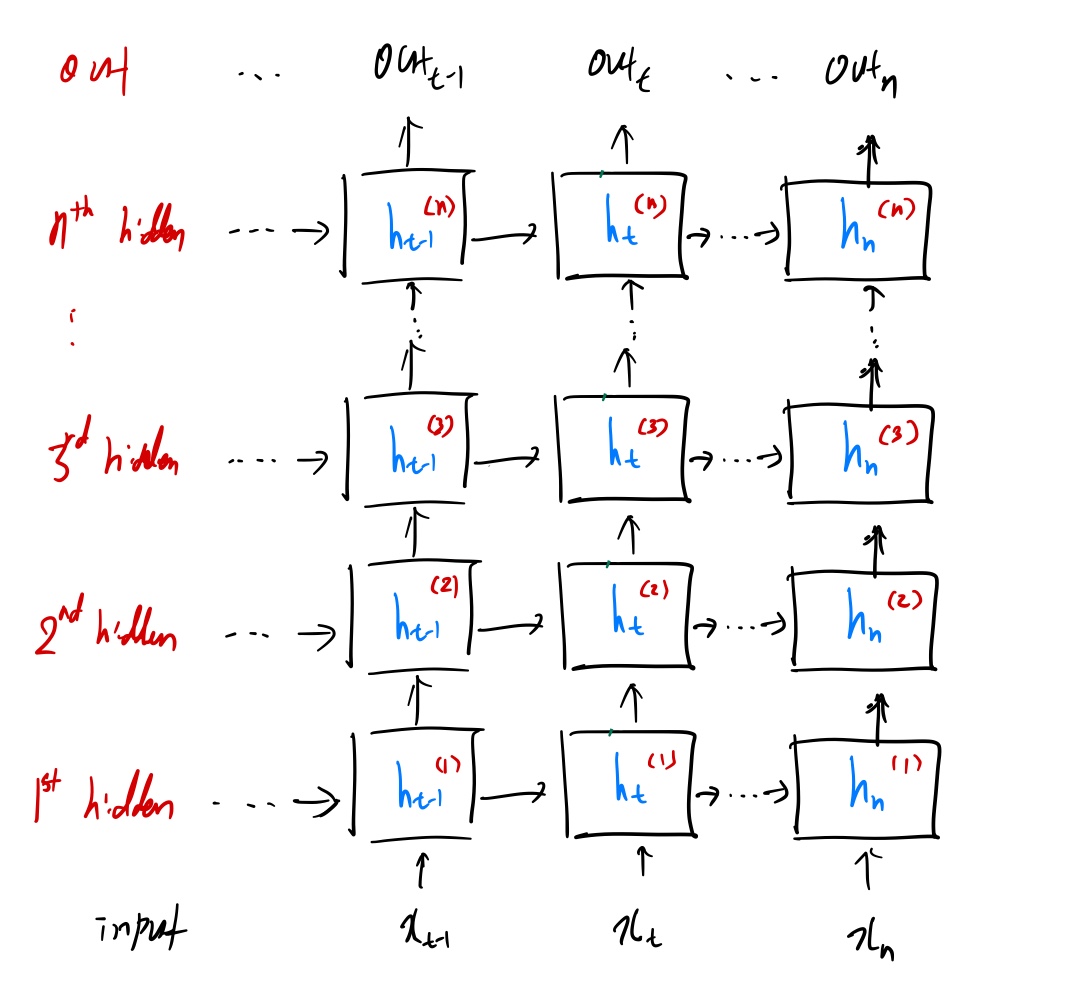 out ... out_{t-1} out_t ... out_n
n^{th} hidden ... h_{t-1}^{(n)} h_t^{(n)} ... h_n^{(n)}
⋮ ⋮ ⋮ ⋮
3^{rd} hidden ... h_{t-1}^{(3)} h_t^{(3)} ... h_n^{(3)}
2^{nd} hidden ... h_{t-1}^{(2)} h_t^{(2)} ... h_n^{(2)}
1^{st} hidden ... h_{t-1}^{(1)} h_t^{(1)} ... h_n^{(1)}
input x_{t-1} x_t x_n